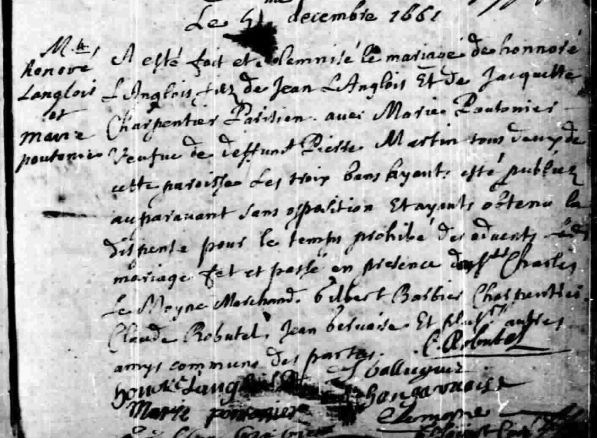 Le 5 decembre 1661
Mar
honoré
Langlois
et
Marie
poutonie
A esté fait et solemnisé le mariage de honnoré
L'Anglois filz de Jean L'Anglois Et de Jacquette
Charpentier Parision. avec Marie Pautonier
Veufue de deffunt Pierre Martin tous deux de
cette paroisse Les trois bans ayants esté publiez
auparavant sans opposition Et ayants obtenu la
dispense pour le temps prohibé des advents
mariage fet et passé en presence de Charles
Le Moyne Marchand. Gilbert Barbier Charpentier
Claude Robutel, Jean Gervaise Et plusrs autres
amys communs des partes.
C. Robutel
honoré Langlois
Marie pontonnier
Jean gervaise
Lemoyne